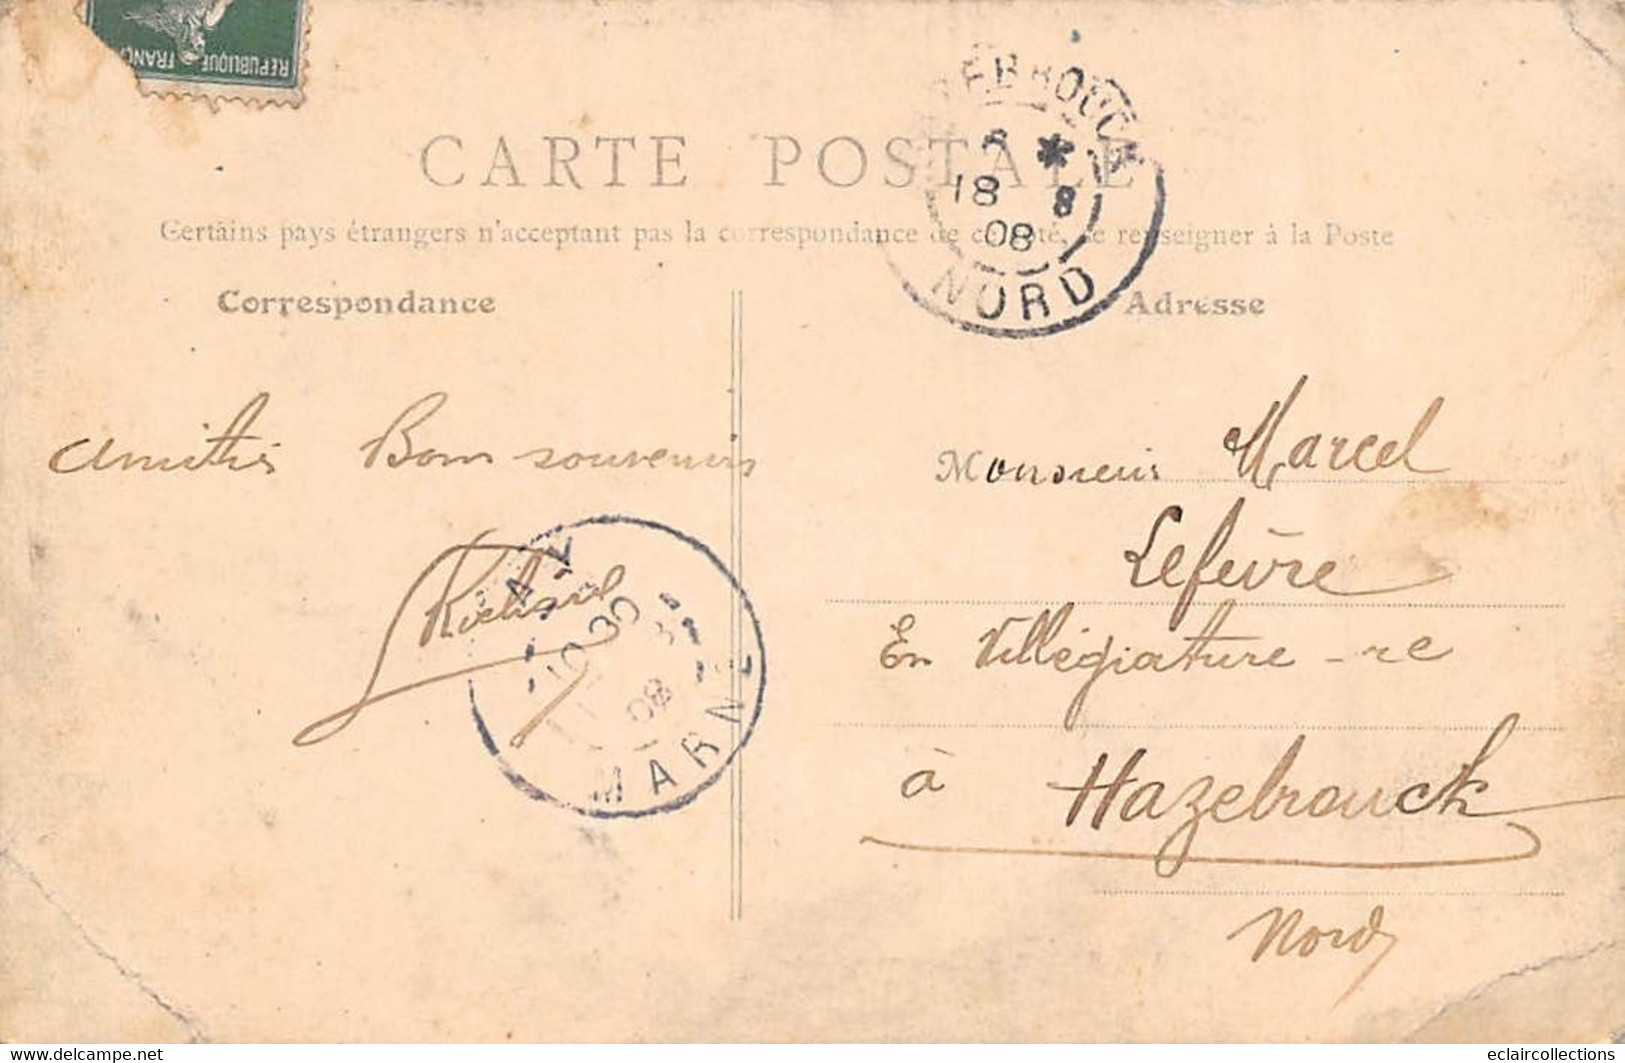 REPUBLIQUE FRANÇ
CARTE POSTALE
Certains pays étrangers n'acceptant pas la correspondance de ce côté, se renseigner à la Poste
Correspondance
Adresse
18 8
08
NORD
amitiés Bons souvenirs
Richard
AY
10 30
08
MARNE
Monsieur Marcel
Lefèvre
En Villégiature
à Hazebrouck
Nord
eclaircollections
www.delcampe.net